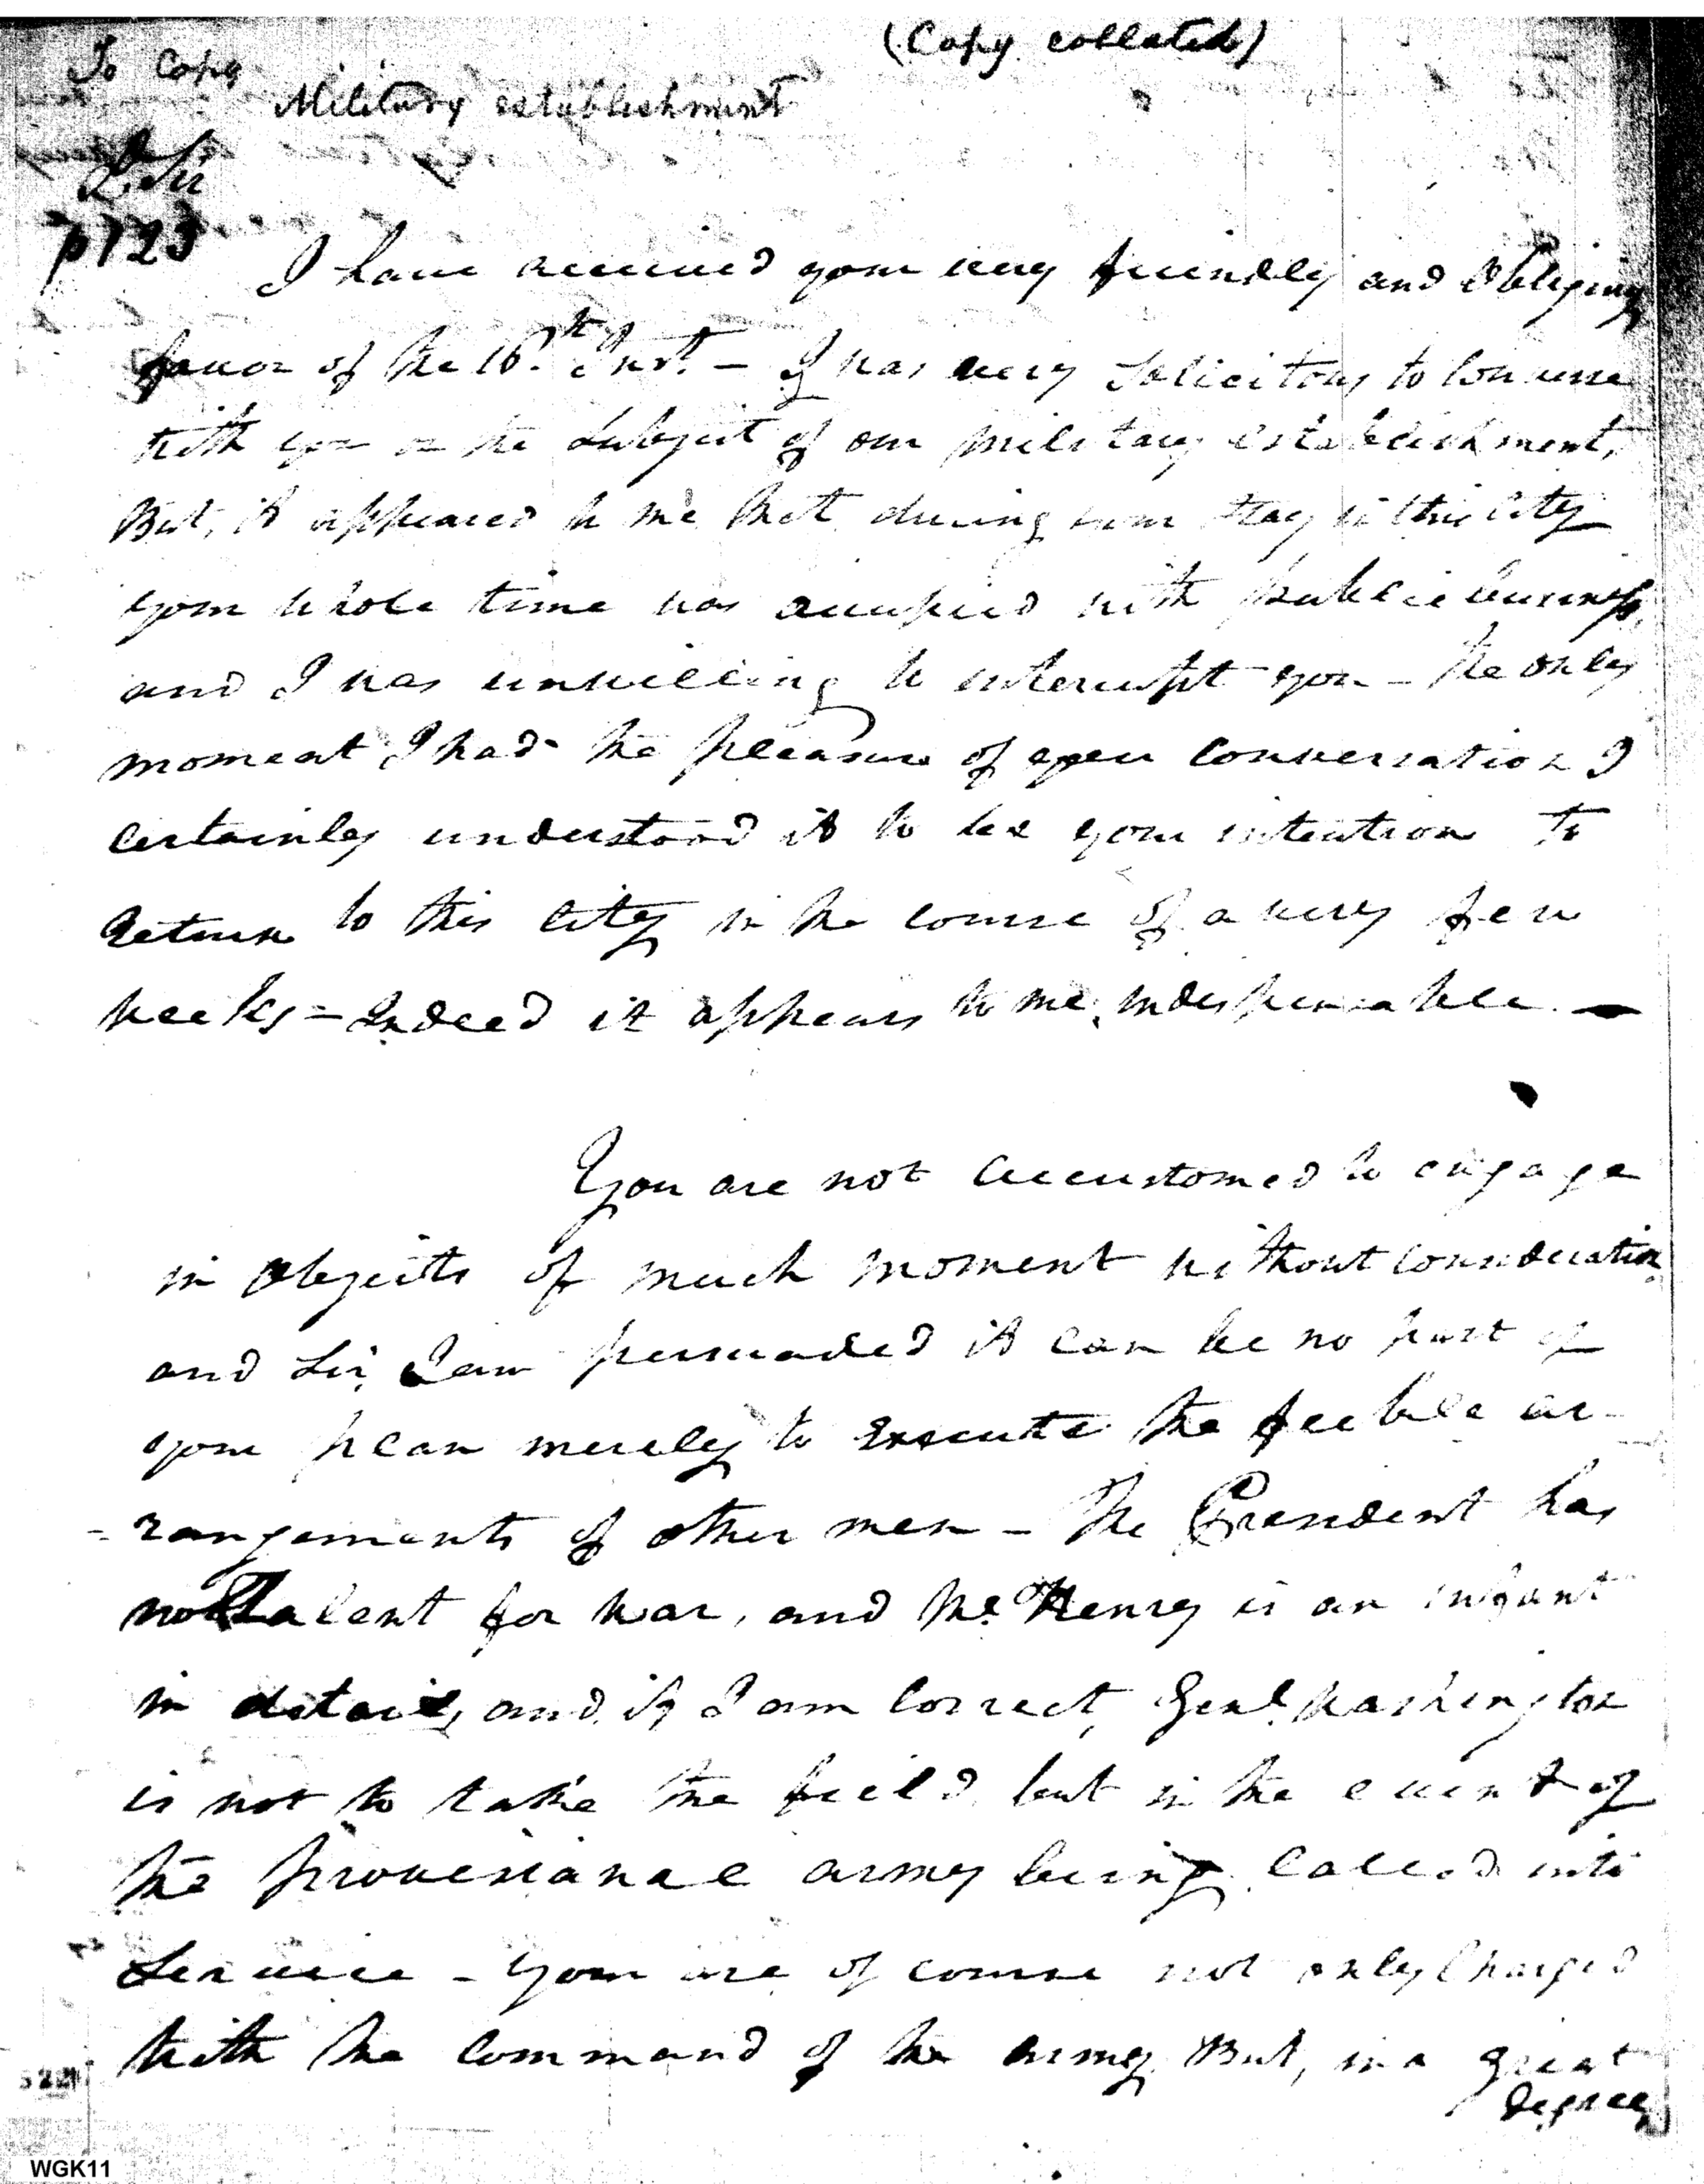 (Copy collated)
To Copy
Military establishment
D. Sir
p 123
I have received your very friendly and Obliging
favor of the 16.th Inst. – I was very Solicitous to Converse
with you on the Subject of our military establishment,
But, it appeared to me that during your stay in this City
your whole time was occupied with public business,
and I was unwilling to interrupt you – the only
moment I had the pleasure of your Conversation I
Certainly understood it to be your intention to
Return to this City in the course of a very few
weeks – Indeed it appears to me, indispensable. –
You are not accustomed to engage
in Objects of much moment without consideration
and Sir, I am persuaded it can be no part of
your plan merely to execute the feeble ar-
-rangements of other men – The President has
no talent for war, and McHenry is an infant
in detail, and, if I am Correct, Genl. Washington
is not to take the field, but in the event of
the provisional army being called into
Service – Your are of course not only Charged
with the Command of the army, But, in a great
degree,
WGK11